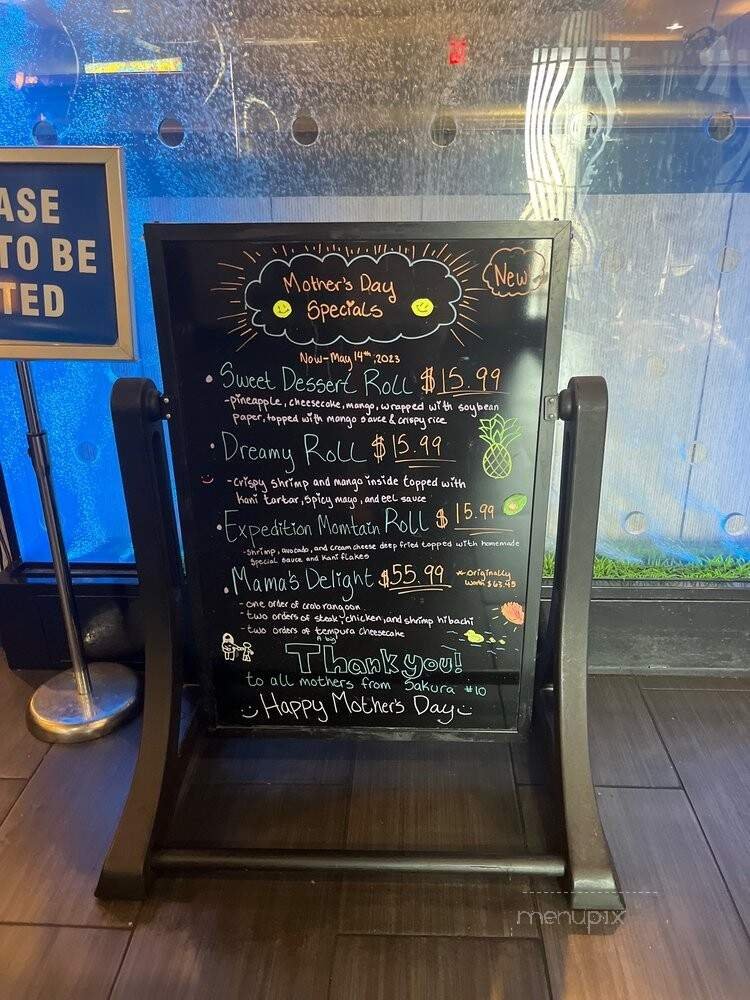 ASE
TO BE
TED
Mother's Day
Specials
New
Now-May 14th, 2023
• Sweet Dessert Roll $15.99
-pineapple, cheesecake, mango, wrapped with soybean
paper, topped with mango sauce & crispy rice
• Dreamy Roll $15.99
-crispy shrimp and mango inside topped with
kani tartar, spicy mayo, and eel sauce
• Expedition Momtain Roll $15.99
-shrimp, avocado, and cream cheese deep fried topped with homemade
special sauce and kani flakes
• Mama's Delight $55.99 * originally
worth $63.45
- one order of crab rangoon
- two orders of steak, chicken, and shrimp hibachi
- two orders of tempura cheesecake
A big
Thank you!
to all mothers from Sakura #10
Happy Mother's Day
menupix